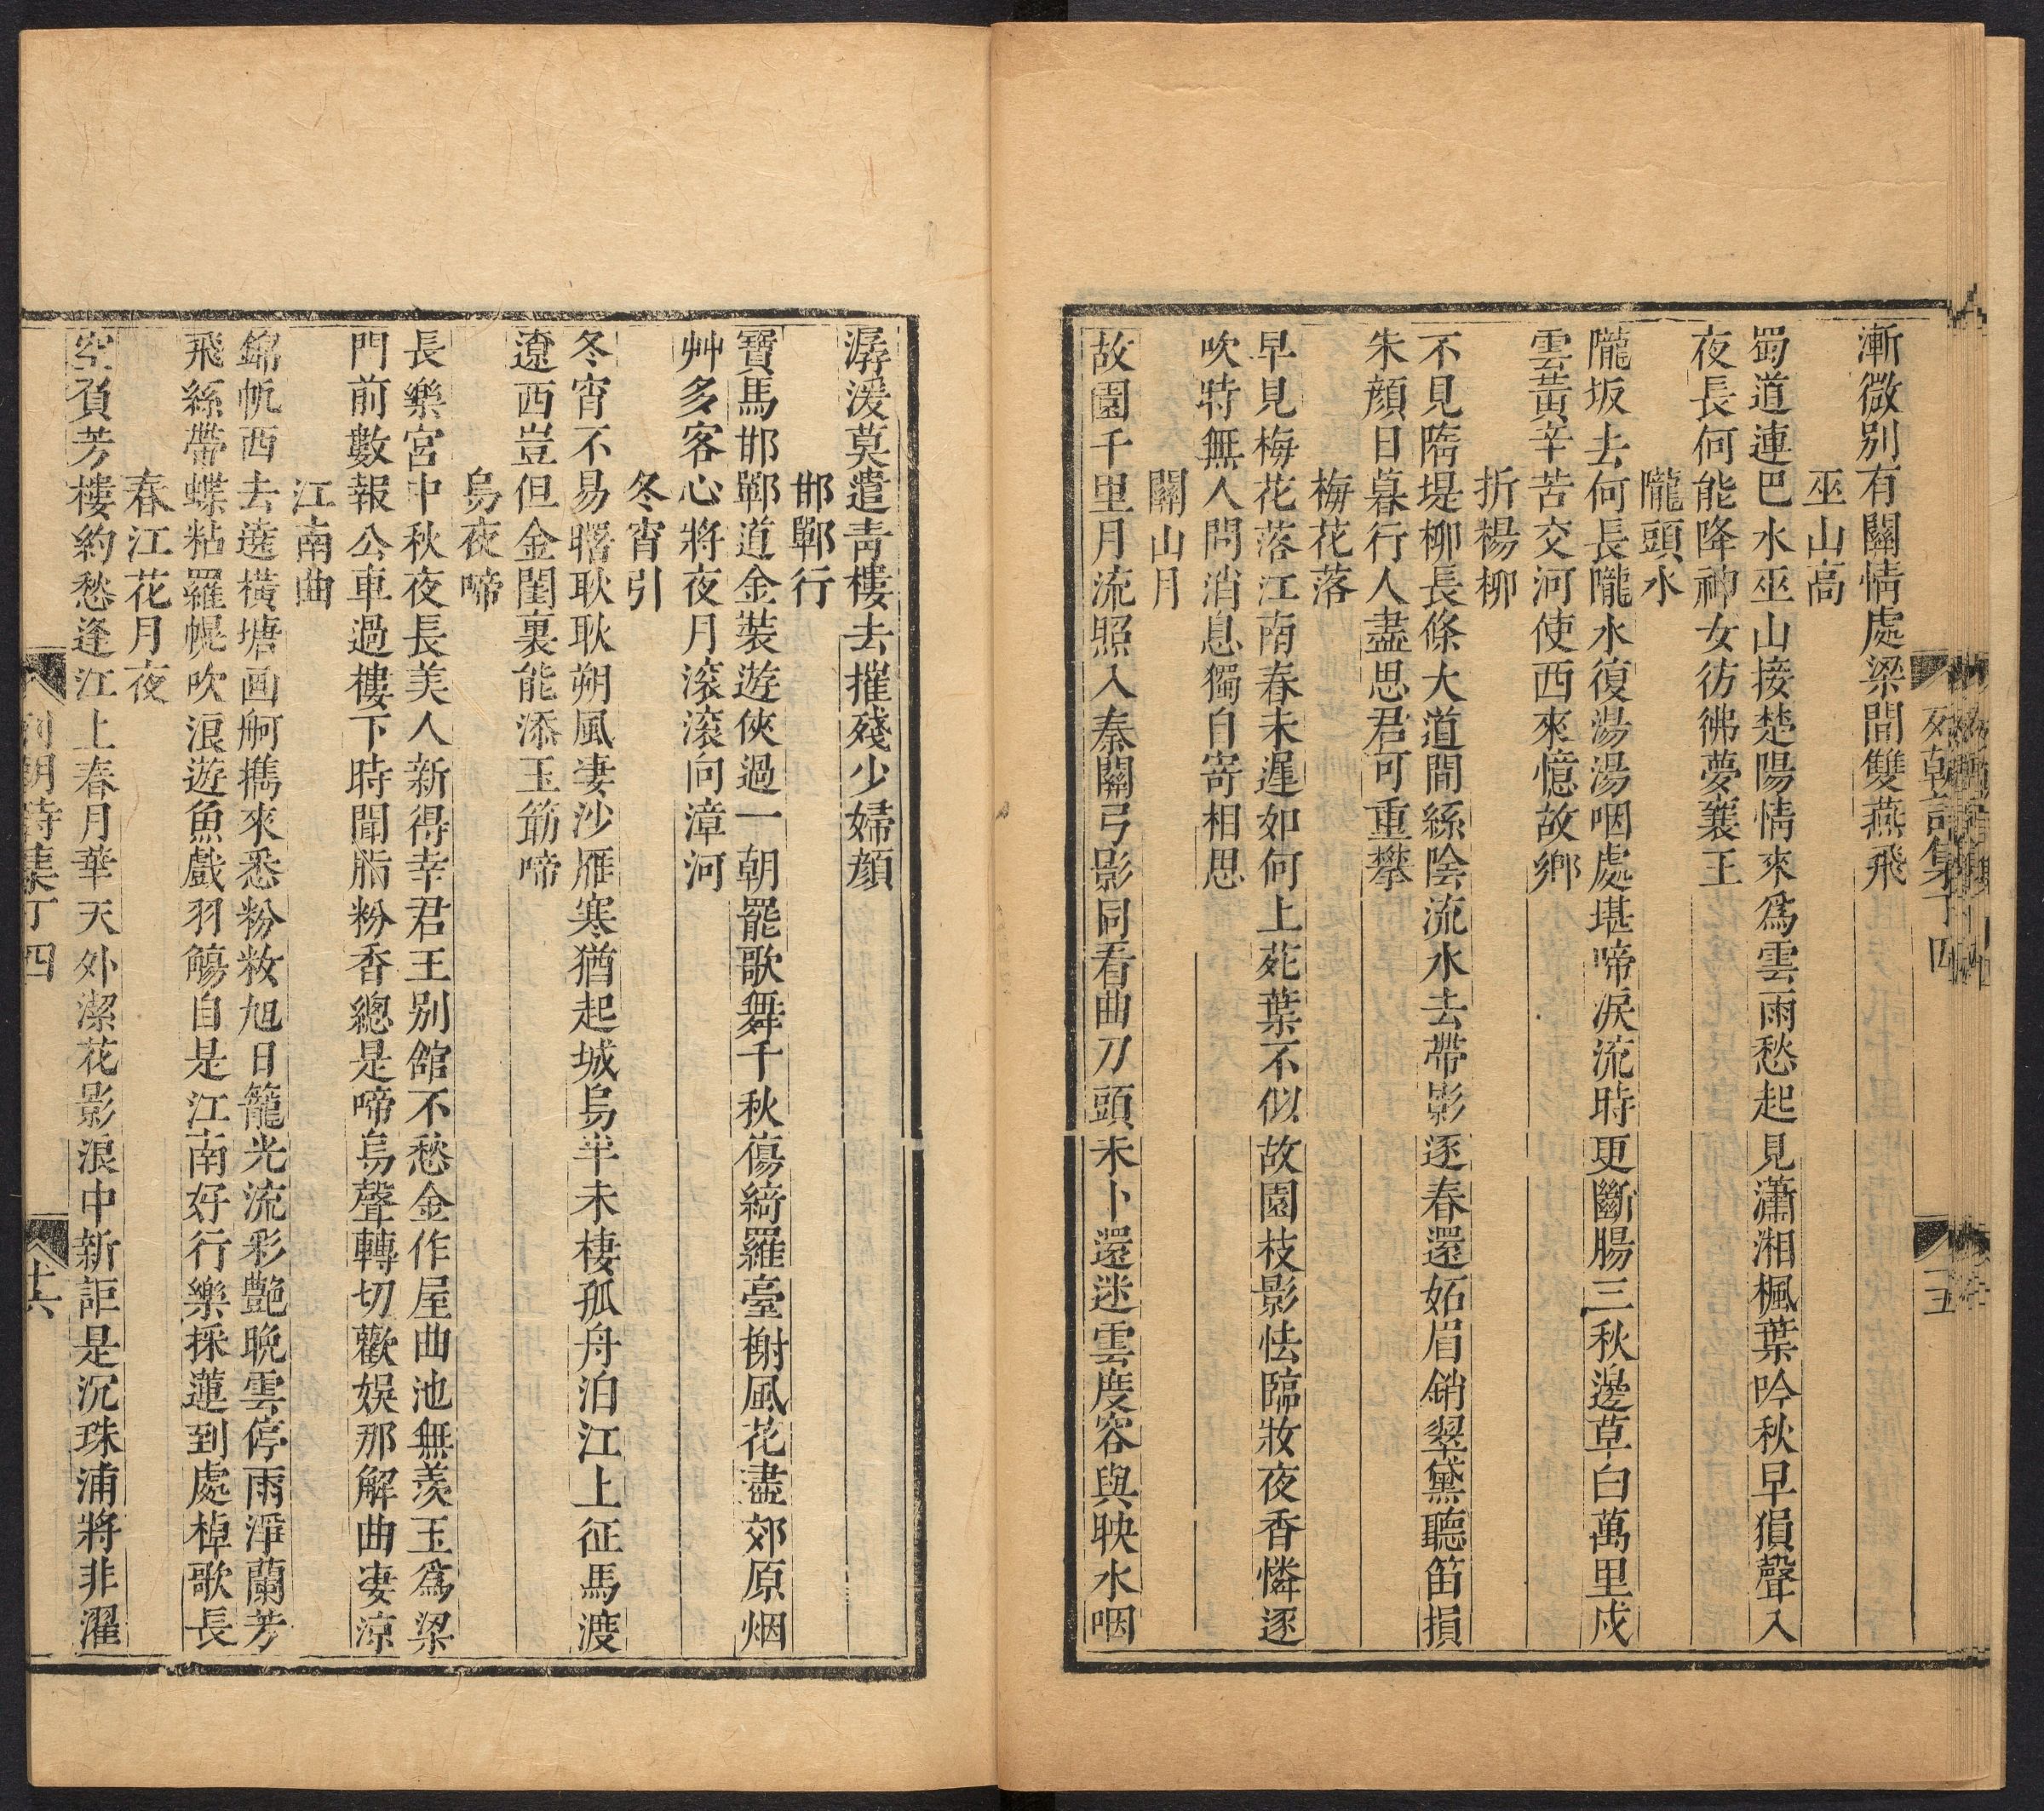 漸微别有關情處梁間雙燕飛
巫山高
蜀道連巴水巫山接楚陽情來爲雲雨愁起見瀟湘楓葉吟秋早猿聲入
夜長何能降神女彷彿夢襄王
隴頭水
隴坂去何長隴水復湯湯咽處堪啼淚流時更斷腸三秋邊草白萬里戍
雲黃辛苦交河使西來憶故鄉
折楊柳
不見隋堤柳長條大道間絲陰流水去帶影逐春還妬眉銷翠黛聽笛損
朱顏日暮行人盡思君可重攀
梅花落
早見梅花落江南春未遲如何上苑葉不似故園枝影怯臨妝夜香憐逐
吹時無人問消息獨自寄相思
關山月
故園千里月流照入秦關弓影同看曲刀頭未卜還迷雲度容與映水咽
潺湲莫遣靑樓去摧殘少婦顏
邯鄲行
寶馬邯鄲道金裝遊俠過一朝罷歌舞千秋傷綺羅臺榭風花盡郊原烟
艸多客心將夜月滚滚向漳河
冬宵引
冬宵不易曙耿耿朔風凄沙雁寒猶起城烏半未棲孤舟泊江上征馬渡
遼西豈但金閨裏能添玉筯啼
烏夜啼
長樂宮中秋夜長美人新得幸君王别舘不愁金作屋曲池無羡玉爲梁
門前數報公車過樓下時聞脂粉香總是啼烏聲轉切歡娛那解曲凄涼
江南曲
錦帆西去遶橫塘画舸擕來悉粉妝旭日籠光流彩艶晩雲停雨渟蘭芳
飛絲帶蝶粘羅幌吹浪遊魚戲羽觴自是江南好行樂採蓮到處棹歌長
春江花月夜
空負芳樓約愁逢江上春月華天外潔花影浪中新詎是沉珠浦將非濯
列朝詩集丁四
十五
列朝詩集丁四
十六